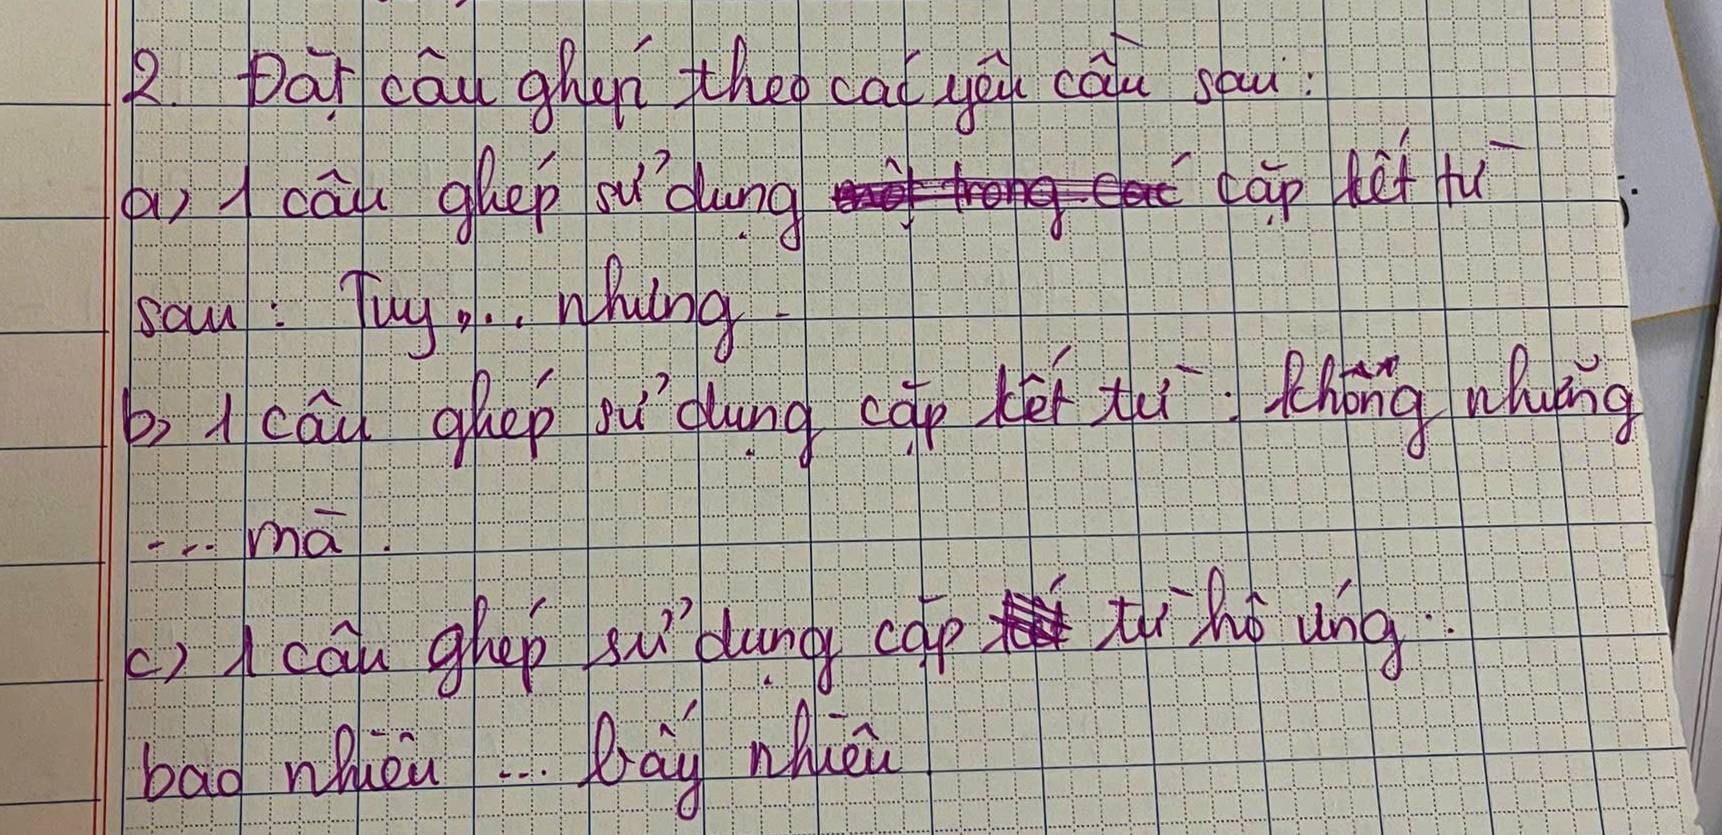 2. Đặt câu ghép theo các yêu cầu sau:
a) 1 câu ghép sử dụng một trong các cặp kết từ
sau: Tuy ... nhưng.
b) 1 câu ghép sử dụng cặp kết từ: không những
... mà.
c) 1 câu ghép sử dụng cặp từ hô ứng:
bao nhiêu ... bấy nhiêu